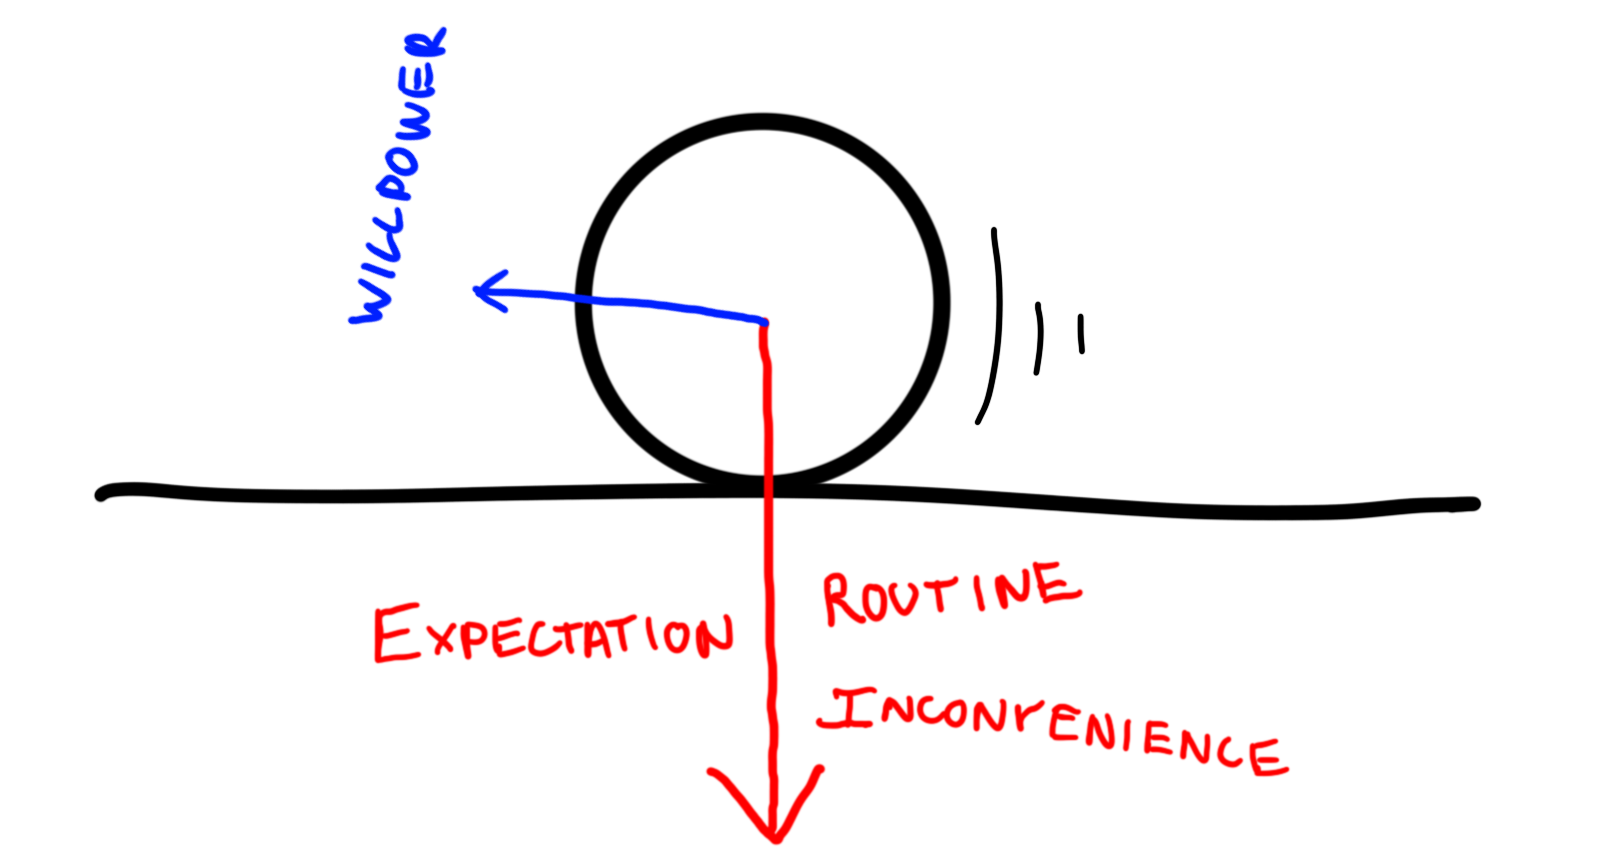 WILLPOWER
EXPECTATION
ROUTINE
INCONVENIENCE